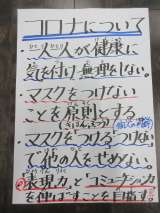 コロナについて
・一人一人が健康に
気を付け無理をしない。
・マスクをつけない
ことを原則とする
・マスクをつける、つけない
で他の人をせめない。
・表現力とコミュニケーション力
を伸ばすことを目指す。